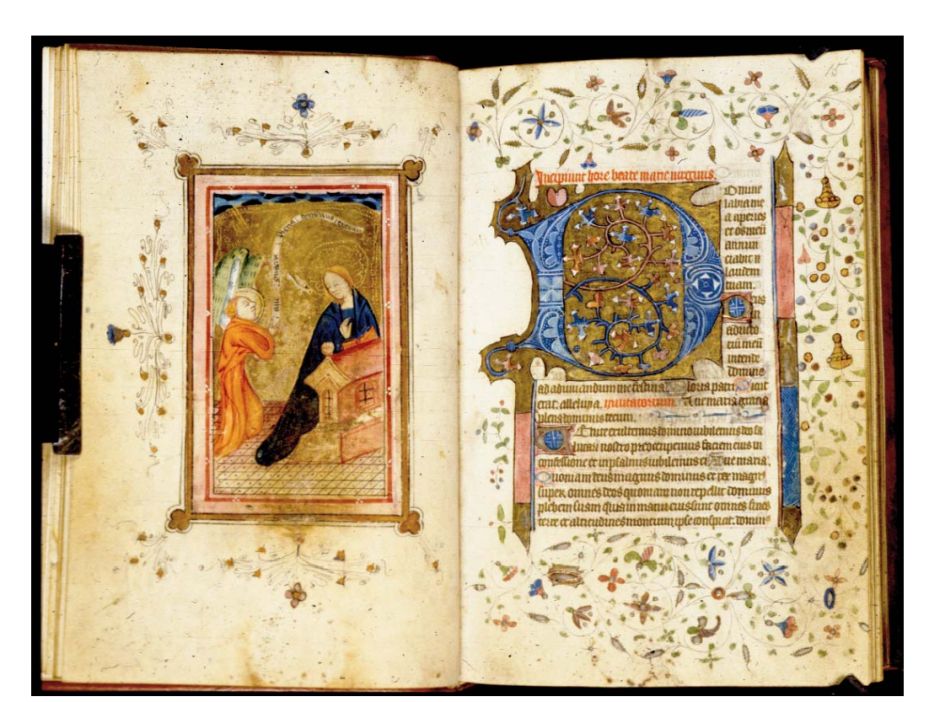 Incipiunt hore beate marie virginis.
Domine
labia me
a aperies
et os meu
annun
ciabit
laudem
tuam.
Deus
in
adiuto
riu meu
intende
domine
ad adiuvandum me festina. Gloria patri Sicut
erat. alleluya. invitatorium. Ave maria gratia
plena dominus tecum.
Venite exultemus domino iubilemus deo sa
lutari nostro preoccupemus faciem eius in
confessione et in psalmis iubilemus ei Ave maria.
Quoniam deus magnus dominus et rex magn
super omnes deos quoniam non repellet dominus
plebem suam quia in manu eius sunt omnes fines
terre et altitudines montium ipse conspicit. domine